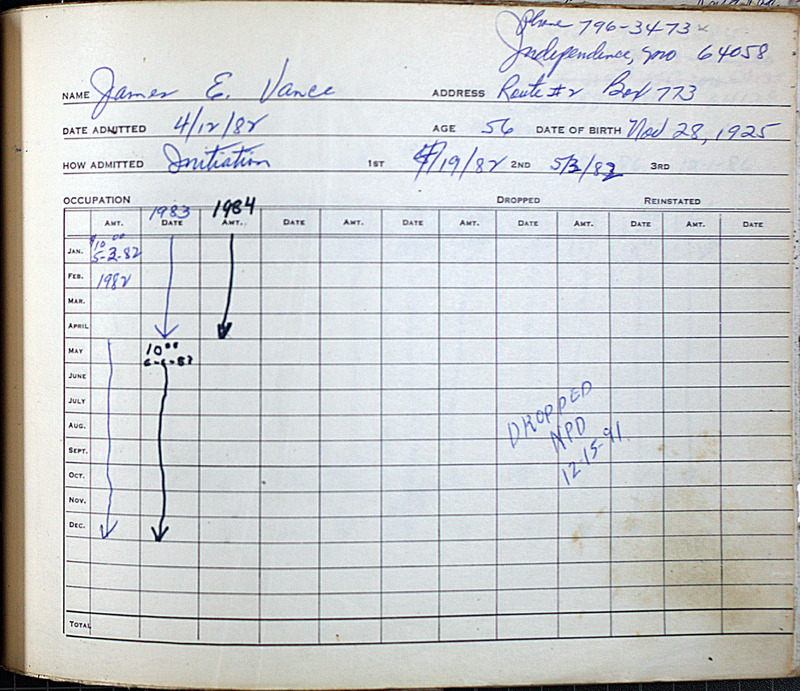 Phone 796-3473
Independence, Mo 64058
NAME James E. Vance ADDRESS Route #2 Box 773
DATE ADMITTED 4/12/82 AGE 56 DATE OF BIRTH Nov 28, 1925
HOW ADMITTED Initiation 1ST 4/19/82 2ND 5/3/82 3RD
OCCUPATION DROPPED REINSTATED
1983 1984
AMT. DATE AMT. DATE AMT. DATE AMT. DATE AMT. DATE AMT. DATE
JAN. $10.00
5-3-82
FEB. 1982
MAR.
APRIL
MAY 10.00
6-6-83
JUNE
JULY
AUG.
SEPT.
OCT.
NOV.
DEC.
DROPPED
NPD
12-15-91
TOTAL